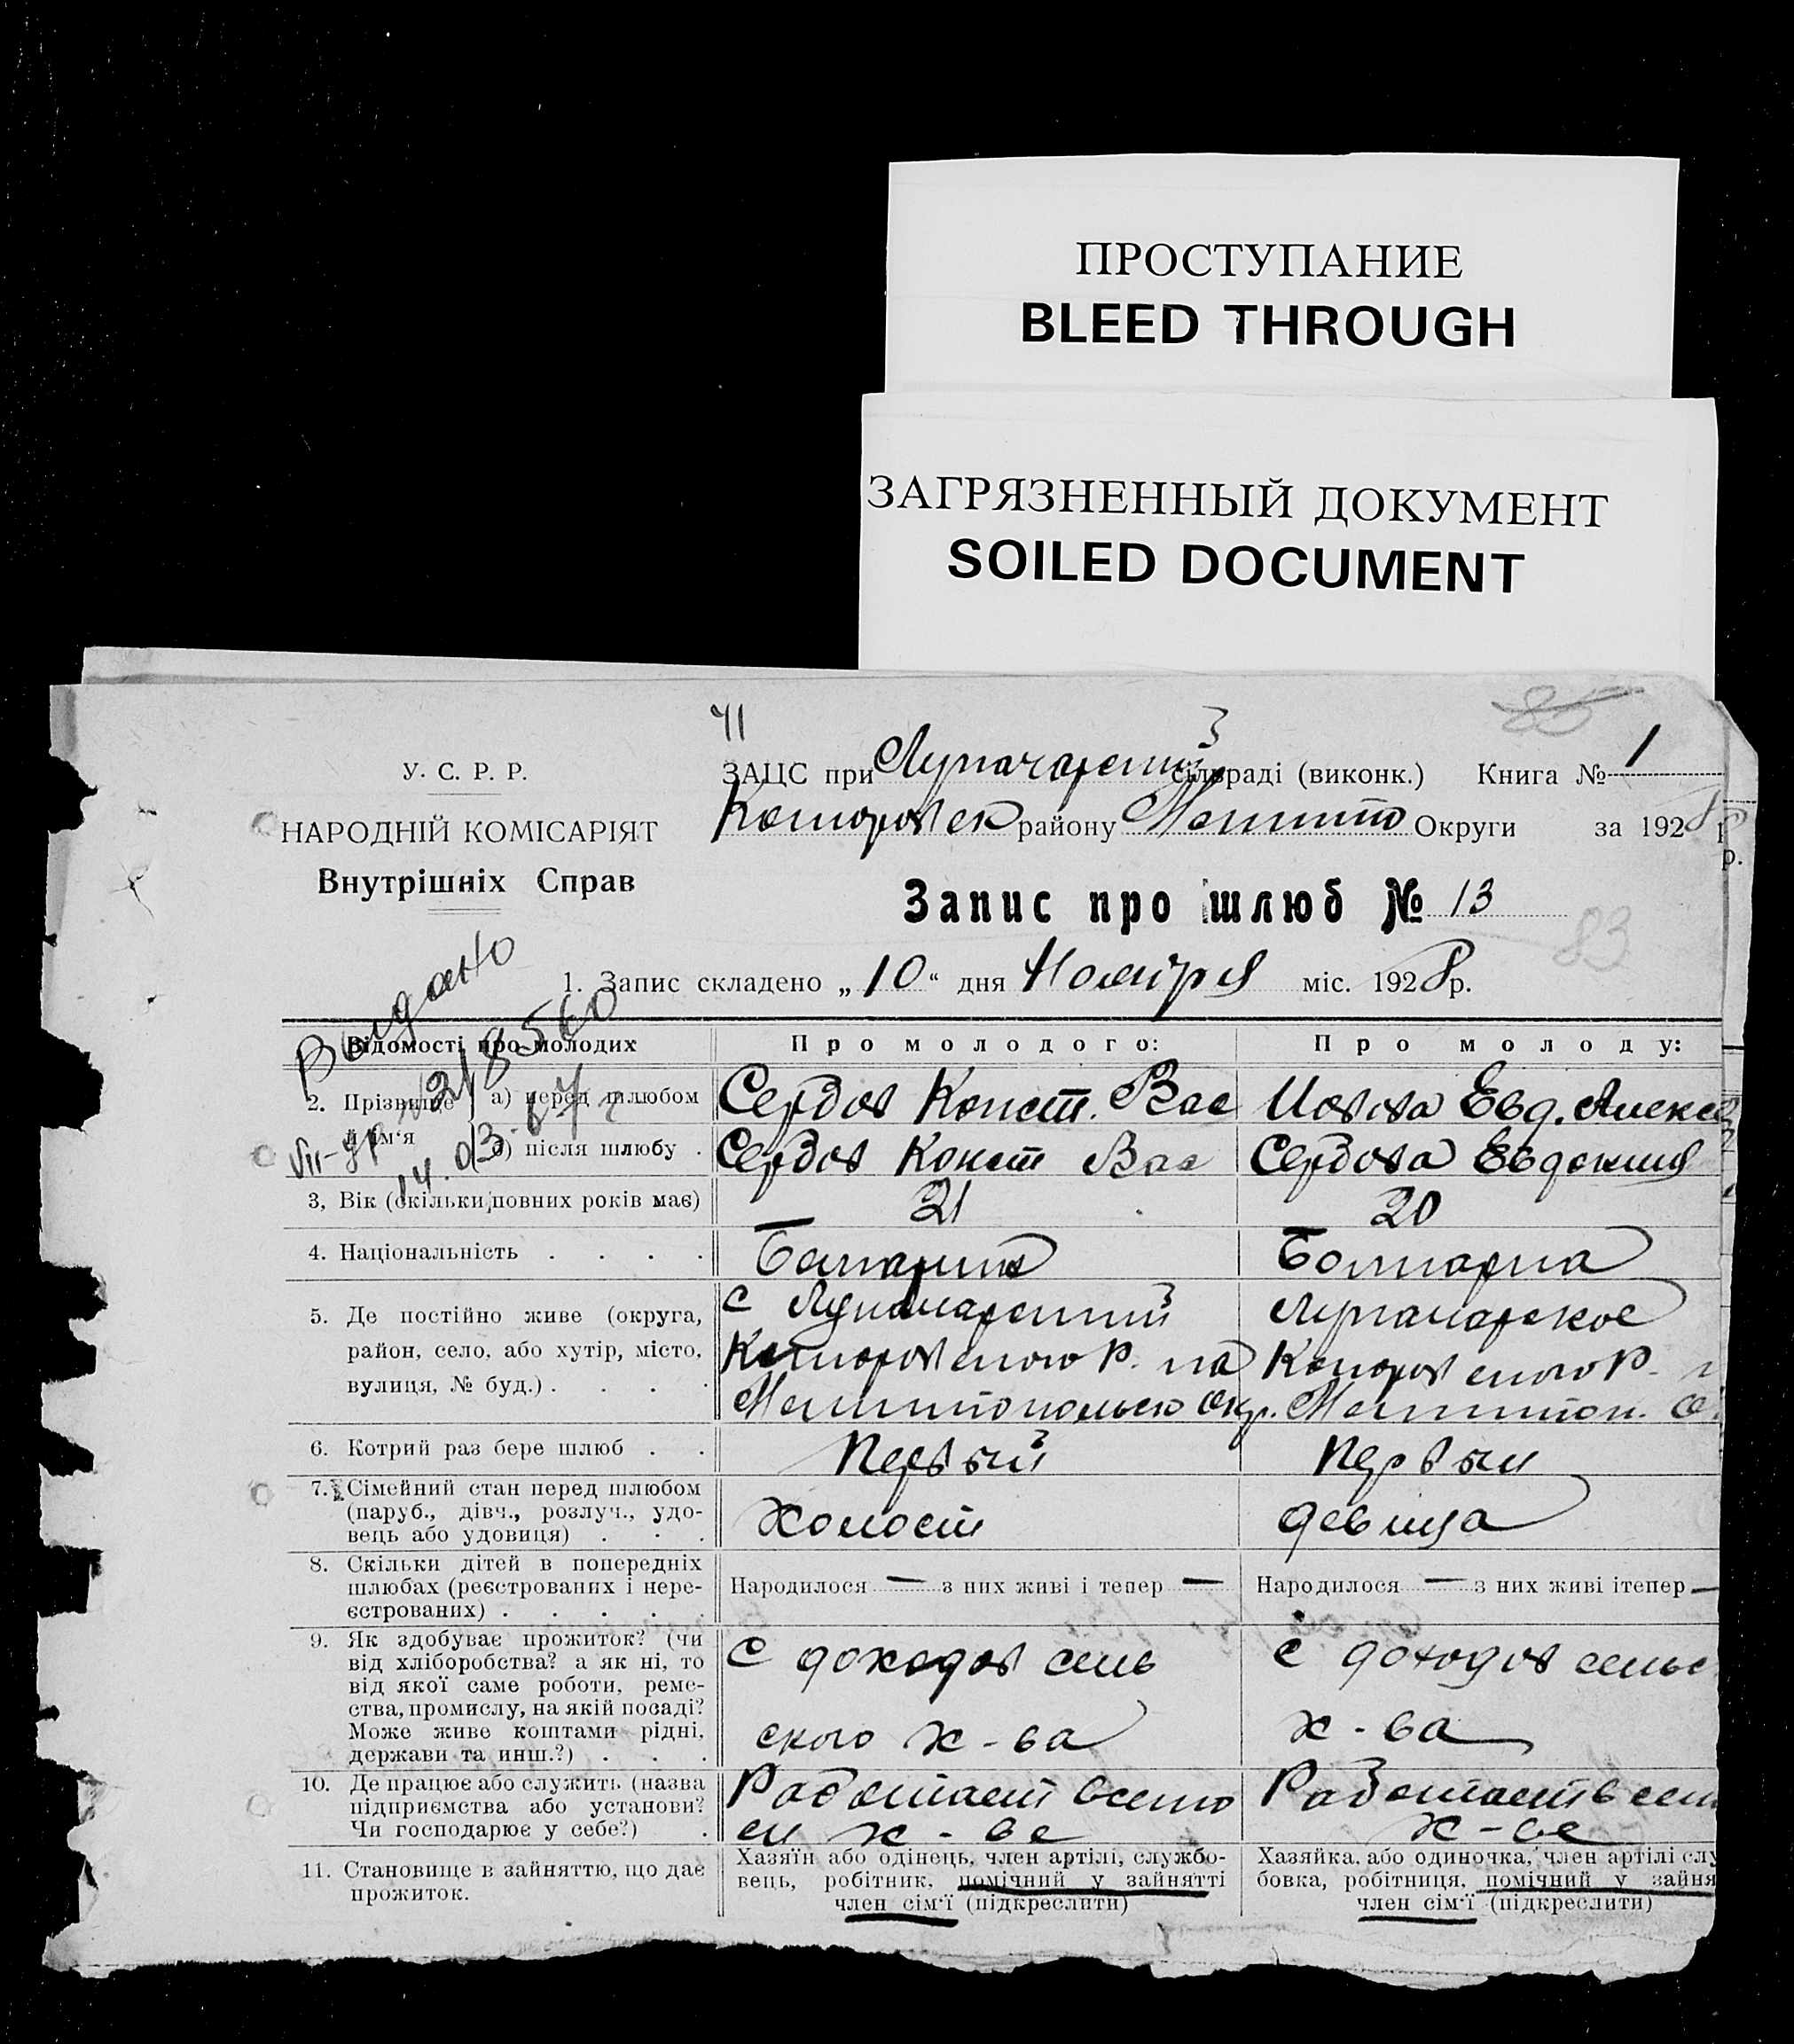 ПРОСТУПАНИЕ
BLEED THROUGH
ЗАГРЯЗНЕННЫЙ ДОКУМЕНТ
SOILED DOCUMENT
У. С. Р. Р.
НАРОДНІЙ КОМІСАРІЯТ
Внутрішніх Справ
ЗАЦС при сільраді (виконк.) Книга № 1
району Округи за 1928 р.
р.
Запис про шлюб № 13
83
1. Запис складено „10“ дня Ноября міс. 1928 р.
Видано
Відомості про молодих Про молодого: Про молоду:
2. Прізвище й ім‘я а) перед шлюбом Сердов Конст. Вас Иовова Евд. Алекс
б) після шлюбу . Сердов Конст Вас Сердова Евдокия
14.03.67 г
3, Вік (скільки повних років має) 21 20
4. Національність . . . . Болгарин Болгарка
5. Де постійно живе (округа, район, село, або хутір, місто, вулиця, № буд.) . . . . с Луначарский Р. на Окр. Луначарское Р.
6. Котрий раз бере шлюб . . Первый Первый
7. Сімейний стан перед шлюбом (паруб., дівч., розлуч., удовець або удовиця) . . . Холост девица
8. Скільки дітей в попередніх шлюбах (реєстрованих і нереєстрованих) . . . . . Народилося — з них живі і тепер — Народилося — з них живі ітепер —
9. Як здобуває прожиток? (чи від хліборобства? а як ні, то від якої саме роботи, ремества, промислу, на якій посаді? Може живе коштами рідні, держави та инш.?) . . . С доходов сельского х-ва с доходов сельс х-ва
10. Де працює або служить (назва підприємства або установи? Чи господарює у себе?) . Работает в х-ве Работает в х-ве
11. Становище в зайняттю, що дає прожиток. Хазяїн або одінець, член артілі, службовець, робітник, помічний у зайнятті член сім‘ї (підкреслити) Хазяйка, або одиночка, член артілі слу бовка, робітниця, помічний у зайня член сім‘ї (підкреслити)